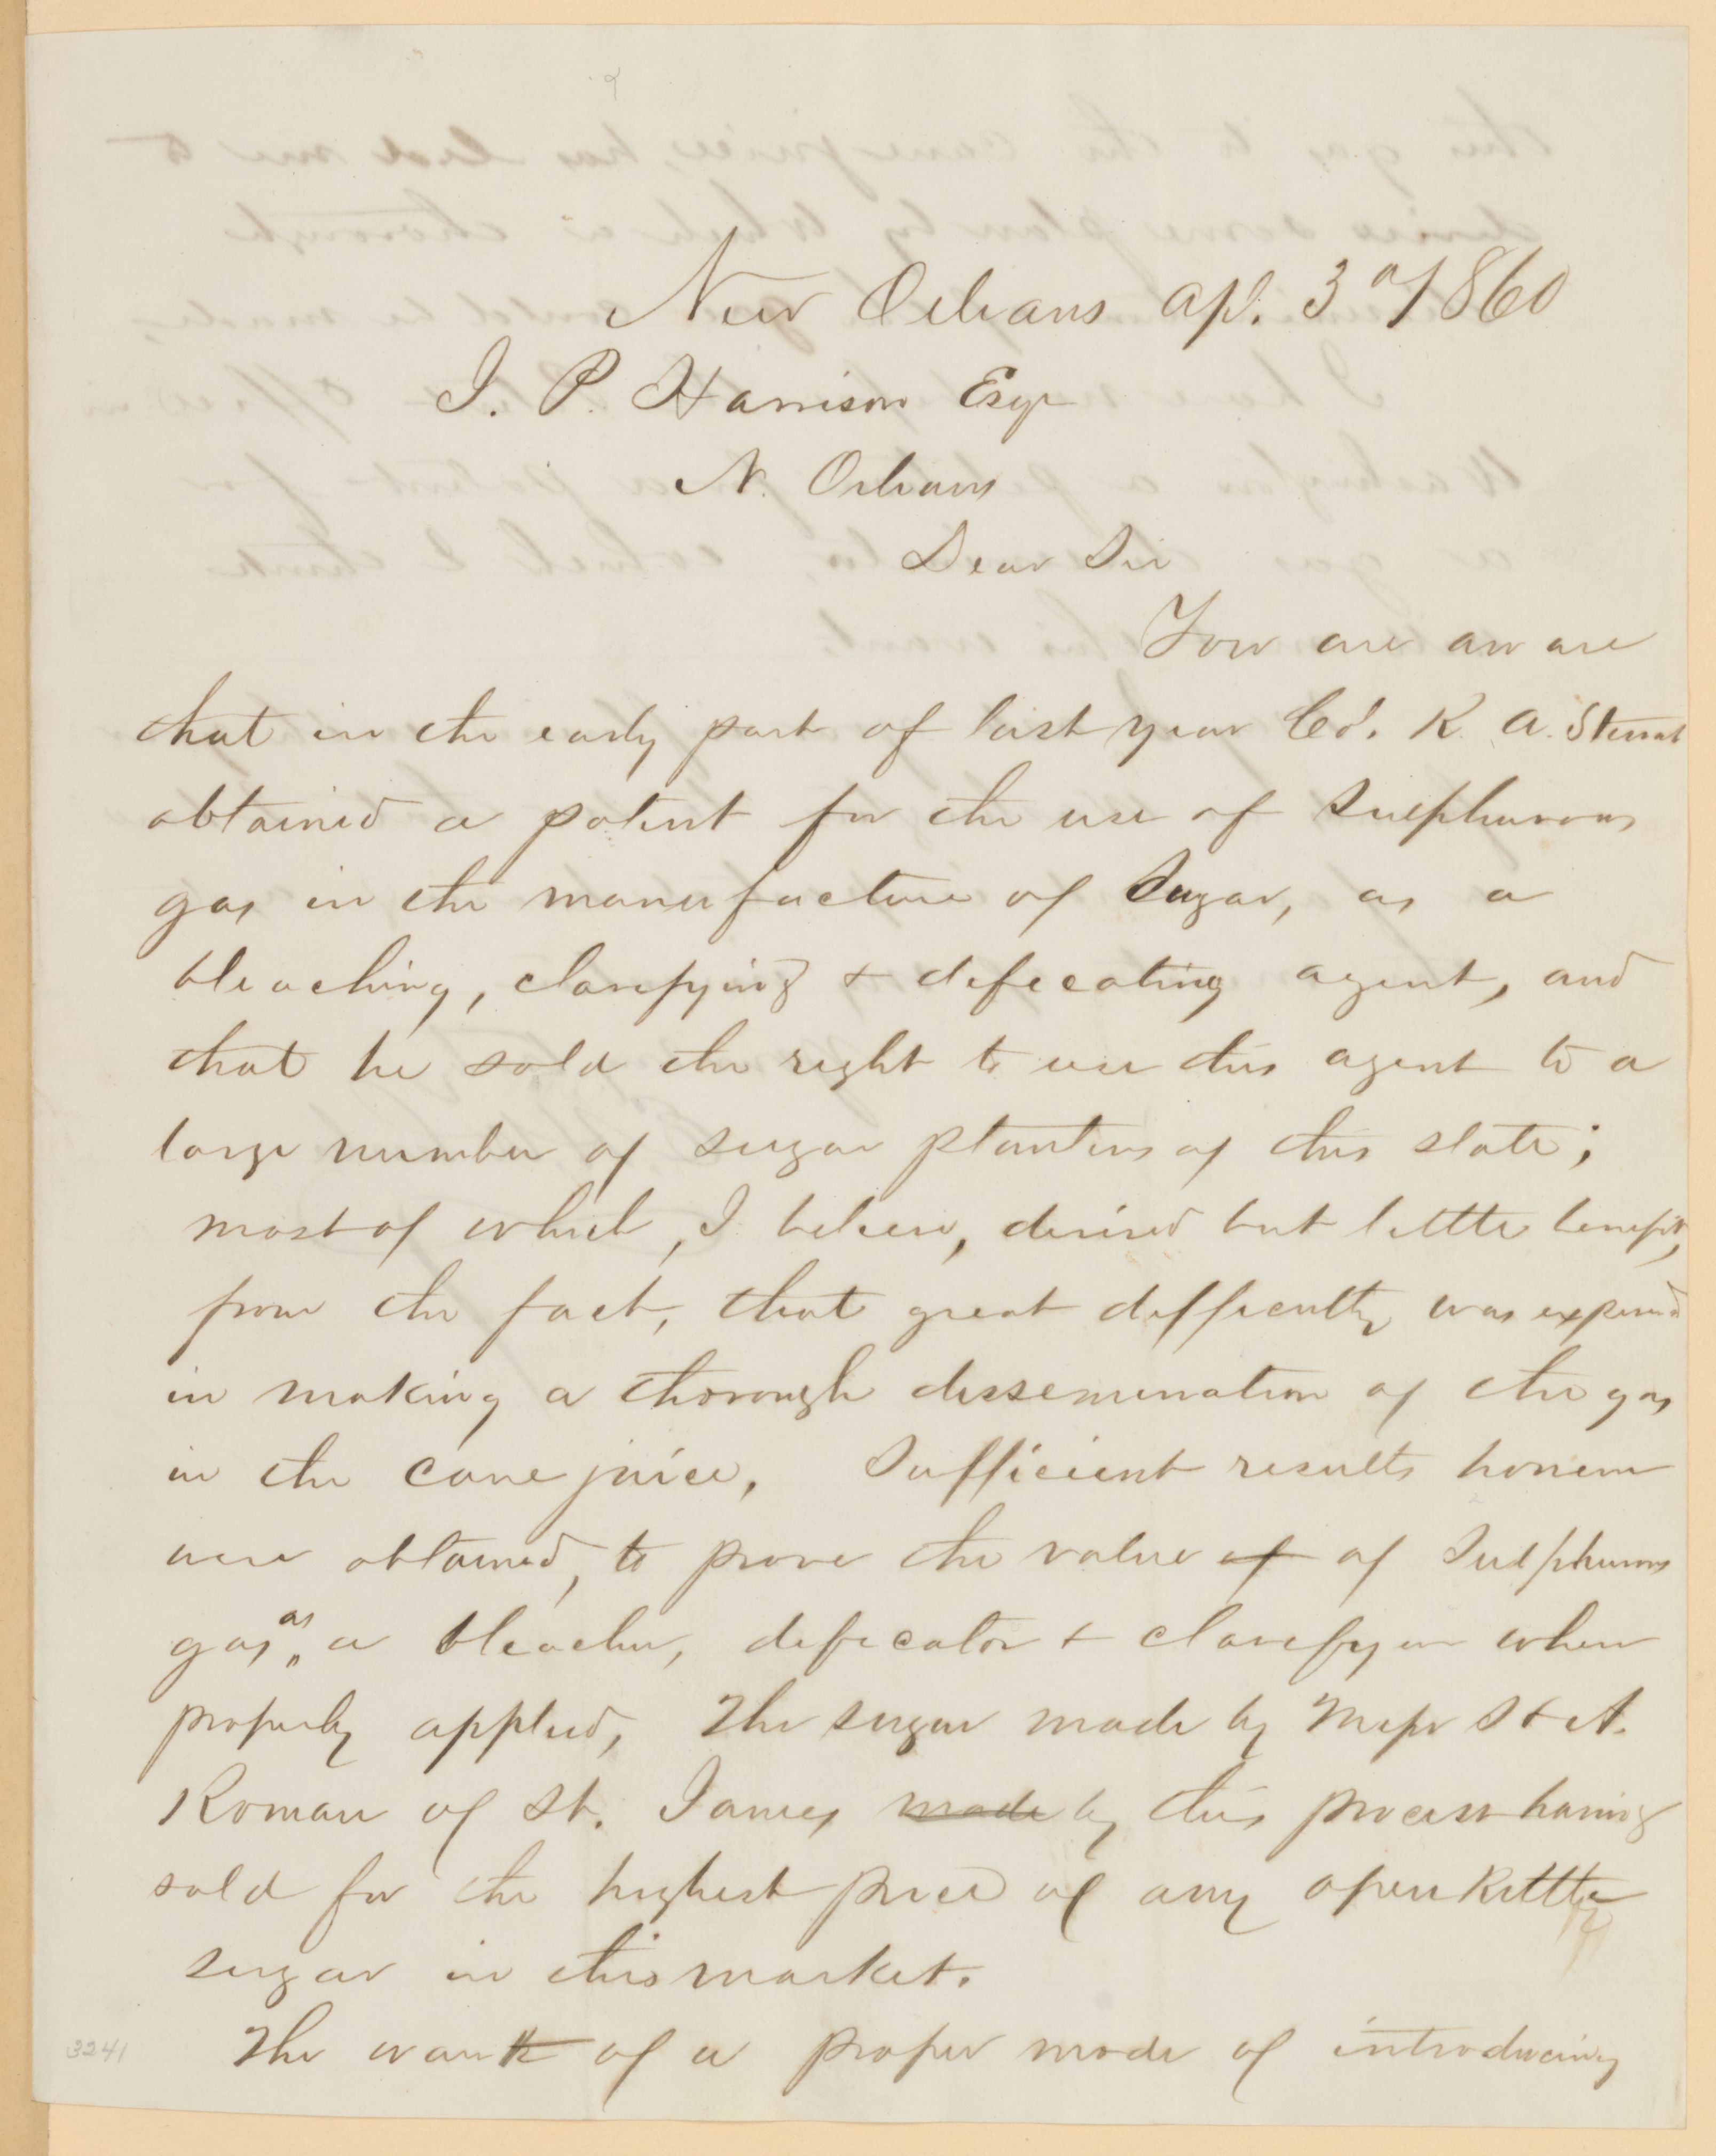 New Orleans Ap. 3d 1860
J. P. Harrison Esqr
N. Orleans
Dear Sir
You are aware
that in the early part of last year Col. R. A. Stewart
obtained a patent for the use of Sulphurous
gas in the manufacture of Sugar, as a
bleaching, clarifying & defecating agent, and
that he sold the right to use this agent to a
large number of sugar planters of this state;
most of which, I believe, derived but little benefit,
from the fact, that great difficulty was experienced
in making a thorough dissemination of the gas
in the cane juice, Sufficient results however
were obtained, to prove the value of of Sulphurous
gas, as a bleacher, defecator & clarifyer when
properly applied, The sugar made by Messr S & A.
Roman of St. James made by this process having
sold for the highest price of any open kettle
sugar in this market.
The want of a proper mode of introducing
3241